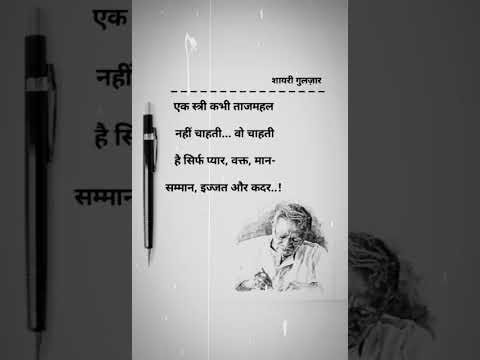 शायरी गुलज़ार
एक स्त्री कभी ताजमहल
नहीं चाहती... वो चाहती
है सिर्फ प्यार, वक्त, मान-
सम्मान, इज्जत और कदर..!